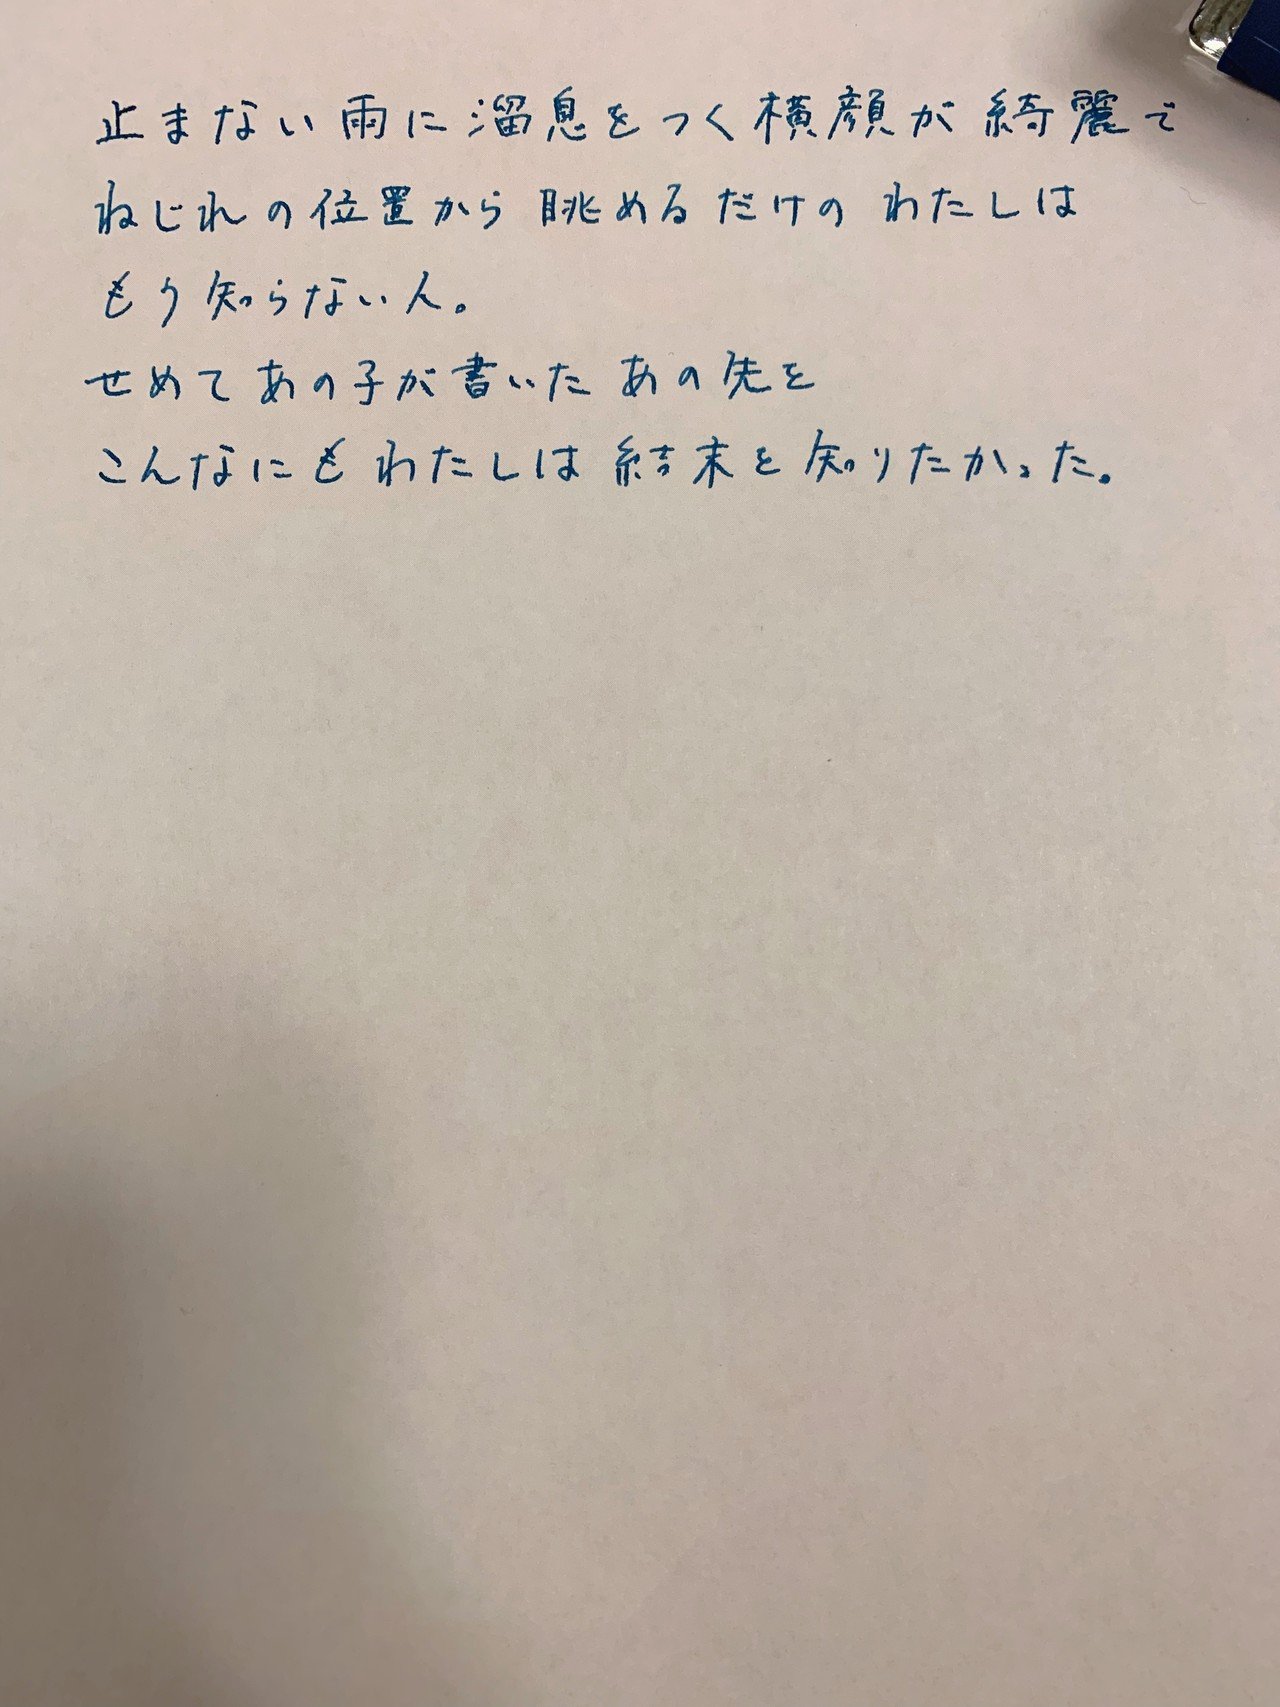 止まない雨に溜息をつく横顔が綺麗で
ねじれの位置から眺めるだけのわたしは
もう知らない人。
せめてあの子が書いたあの先を
こんなにもわたしは結末を知りたかった。